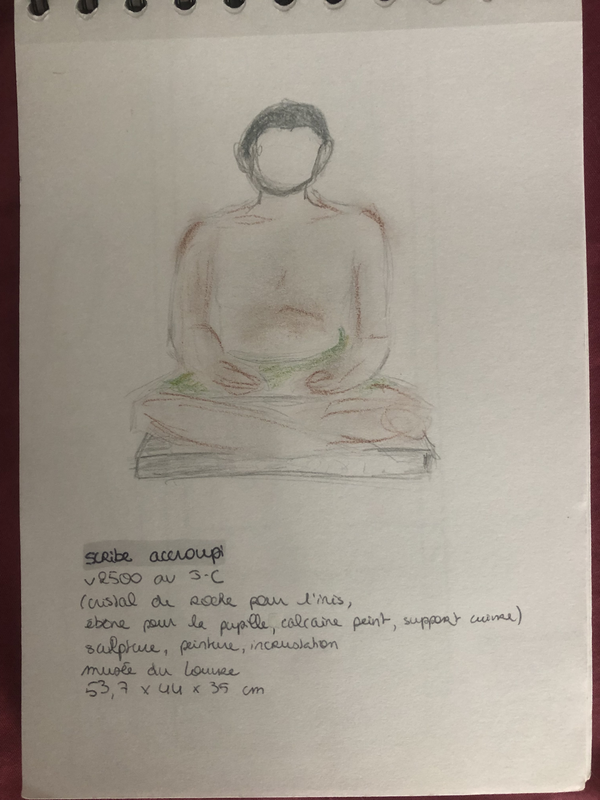 scribe accroupi
v 2500 av J-C
(cristal de roche pour l'iris,
ébène pour la pupille, calcaire peint, support cuivre)
sculpture, peinture, incrustation
musée du Louvre
53,7 x 44 x 35 cm